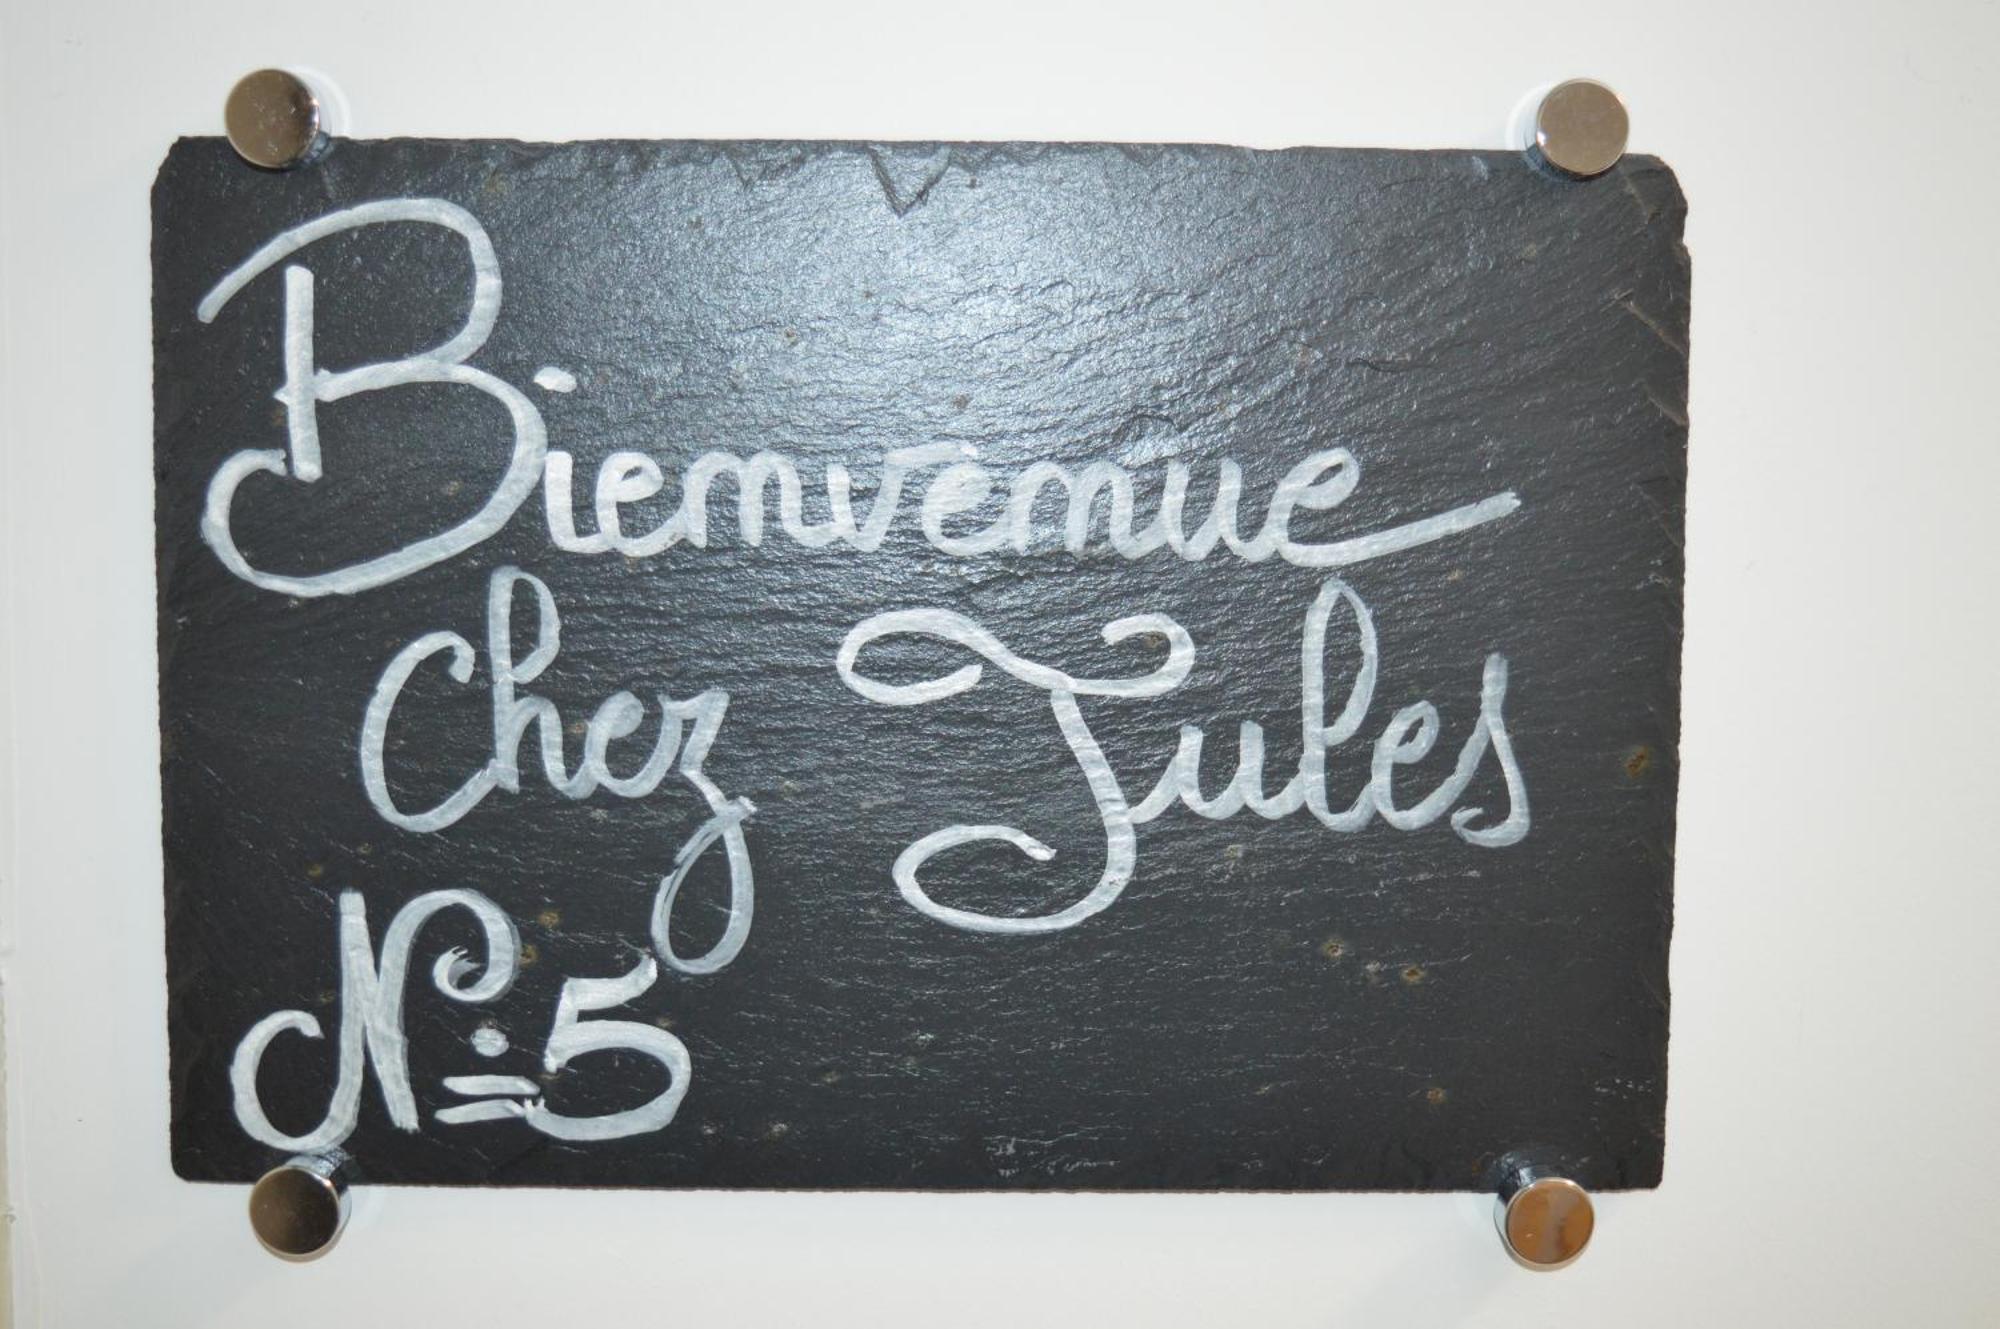 Bienvenue
Chez Jules
N° 5